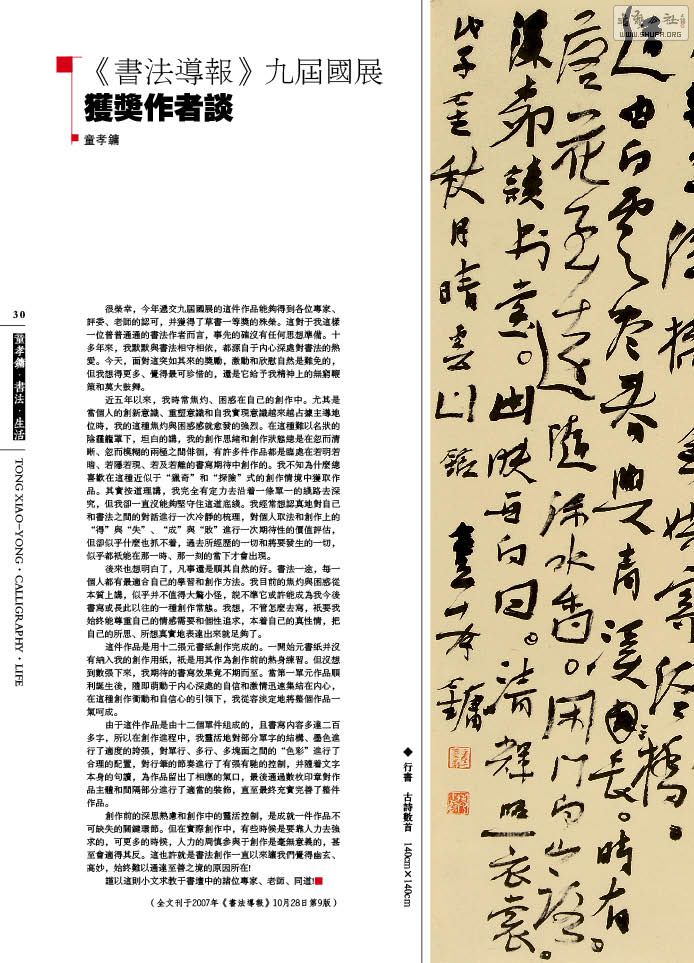 《書法導報》九屆國展
獲獎作者談
童孝鏞
很榮幸，今年遞交九屆國展的這件作品能夠得到各位專家、
評委、老師的認可，并獲得了草書一等獎的殊榮。這對于我這樣
一位普普通通的書法作者而言，事先的確沒有任何思想準備。十
多年來，我默默與書法相守相依，都源自于内心深處對書法的熱
愛。今天，面對這突如其來的獎勵，激動和欣慰自然是難免的，
但我想得更多、覺得最可珍惜的，還是它給予我精神上的無窮鞭
策和莫大鼓舞。
近五年以來，我時常焦灼、困惑在自己的創作中。尤其是
當個人的創新意識、重塑意識和自我實現意識越來越占據主導地
位時，我的這種焦灼與困惑感就愈發的強烈。在這種難以名狀的
陰霾籠罩下，坦白的講，我的創作思緒和創作狀態總是在忽而清
晰、忽而模糊的兩極之間徘徊，有許多件作品都是臨處在若明若
暗、若隱若現、若及若離的書寫期待中創作的。我不知為什麼總
喜歡在這種近似于“獵奇”和“探險”式的創作情境中獲取作
品。其實按道理講，我完全有定力去沿着一條單一的綫路去深
究，但我卻一直沒能夠堅守住這道底綫。我經常想認真地對自己
和書法之間的對話進行一次冷靜的梳理，對個人取法和創作上的
“得”與“失”、“成”與“敗”進行一次期待性的價值評估，
但卻似乎什麼也抓不着，過去所經歷的一切和將要發生的一切，
似乎都祇能在那一時、那一刻的當下才會出現。
後來也想明白了，凡事還是順其自然的好。書法一途，每一
個人都有最適合自己的學習和創作方法。我目前的焦灼與困惑從
本質上講，似乎并不值得大驚小怪，說不準它或許能成為我今後
書寫或長此以往的一種創作常態。我想，不管怎麼去寫，祇要我
始終能尊重自己的情感需要和個性追求，本着自己的真性情，把
自己的所思、所想真實地表達出來就足夠了。
這件作品是用十二張元書紙創作完成的。一開始元書紙并沒
有納入我的創作用紙，祇是用其作為創作前的熱身練習。但沒想
到數張下來，我期待的書寫效果竟不期而至。當第一單元作品順
利誕生後，隨即萌動于内心深處的自信和激情迅速集結在内心，
在這種創作衝動和自信心的引領下，我從容淡定地將整個作品一
氣呵成。
由于這件作品是由十二個單件組成的，且書寫内容多達二百
多字，所以在創作進程中，我靈活地對部分單字的結構、墨色進
行了適度的誇張，對單行、多行、多塊面之間的“色彩”進行了
合理的配置，對行筆的節奏進行了有張有馳的控制，并隨着文字
本身的句讀，為作品留出了相應的氣口，最後通過數枚印章對作
品主體和間隔部分進行了適當的裝飾，直至最終充實完善了整件
作品。
創作前的深思熟慮和創作中的靈活控制，是成就一件作品不
可缺失的關鍵環節。但在實際創作中，有些時候是要靠人力去強
求的，可更多的時候，人力的周慎參與于創作是毫無意義的，甚
至會適得其反。這也許就是書法創作一直以來讓我們覺得幽玄、
高妙，始終難以通達至善之境的原因所在!
謹以這則小文求教于書壇中的諸位專家、老師、同道!
（全文刊于2007年《書法導報》10月28日第9版）
30
童孝鏞·書法·生活
TONG XIAO-YONG·CALLIGRAPHY·LIFE
◆ 行書 古詩數首 140cm×140cm
WWW.SHUFA.ORG
道由白雲盡春與青溪長。時有
落花至遠隨流水香。閑門向山路。
深柳讀書堂。幽映每白日。清輝照衣裳。
戊子金秋月晴書
童孝鏞